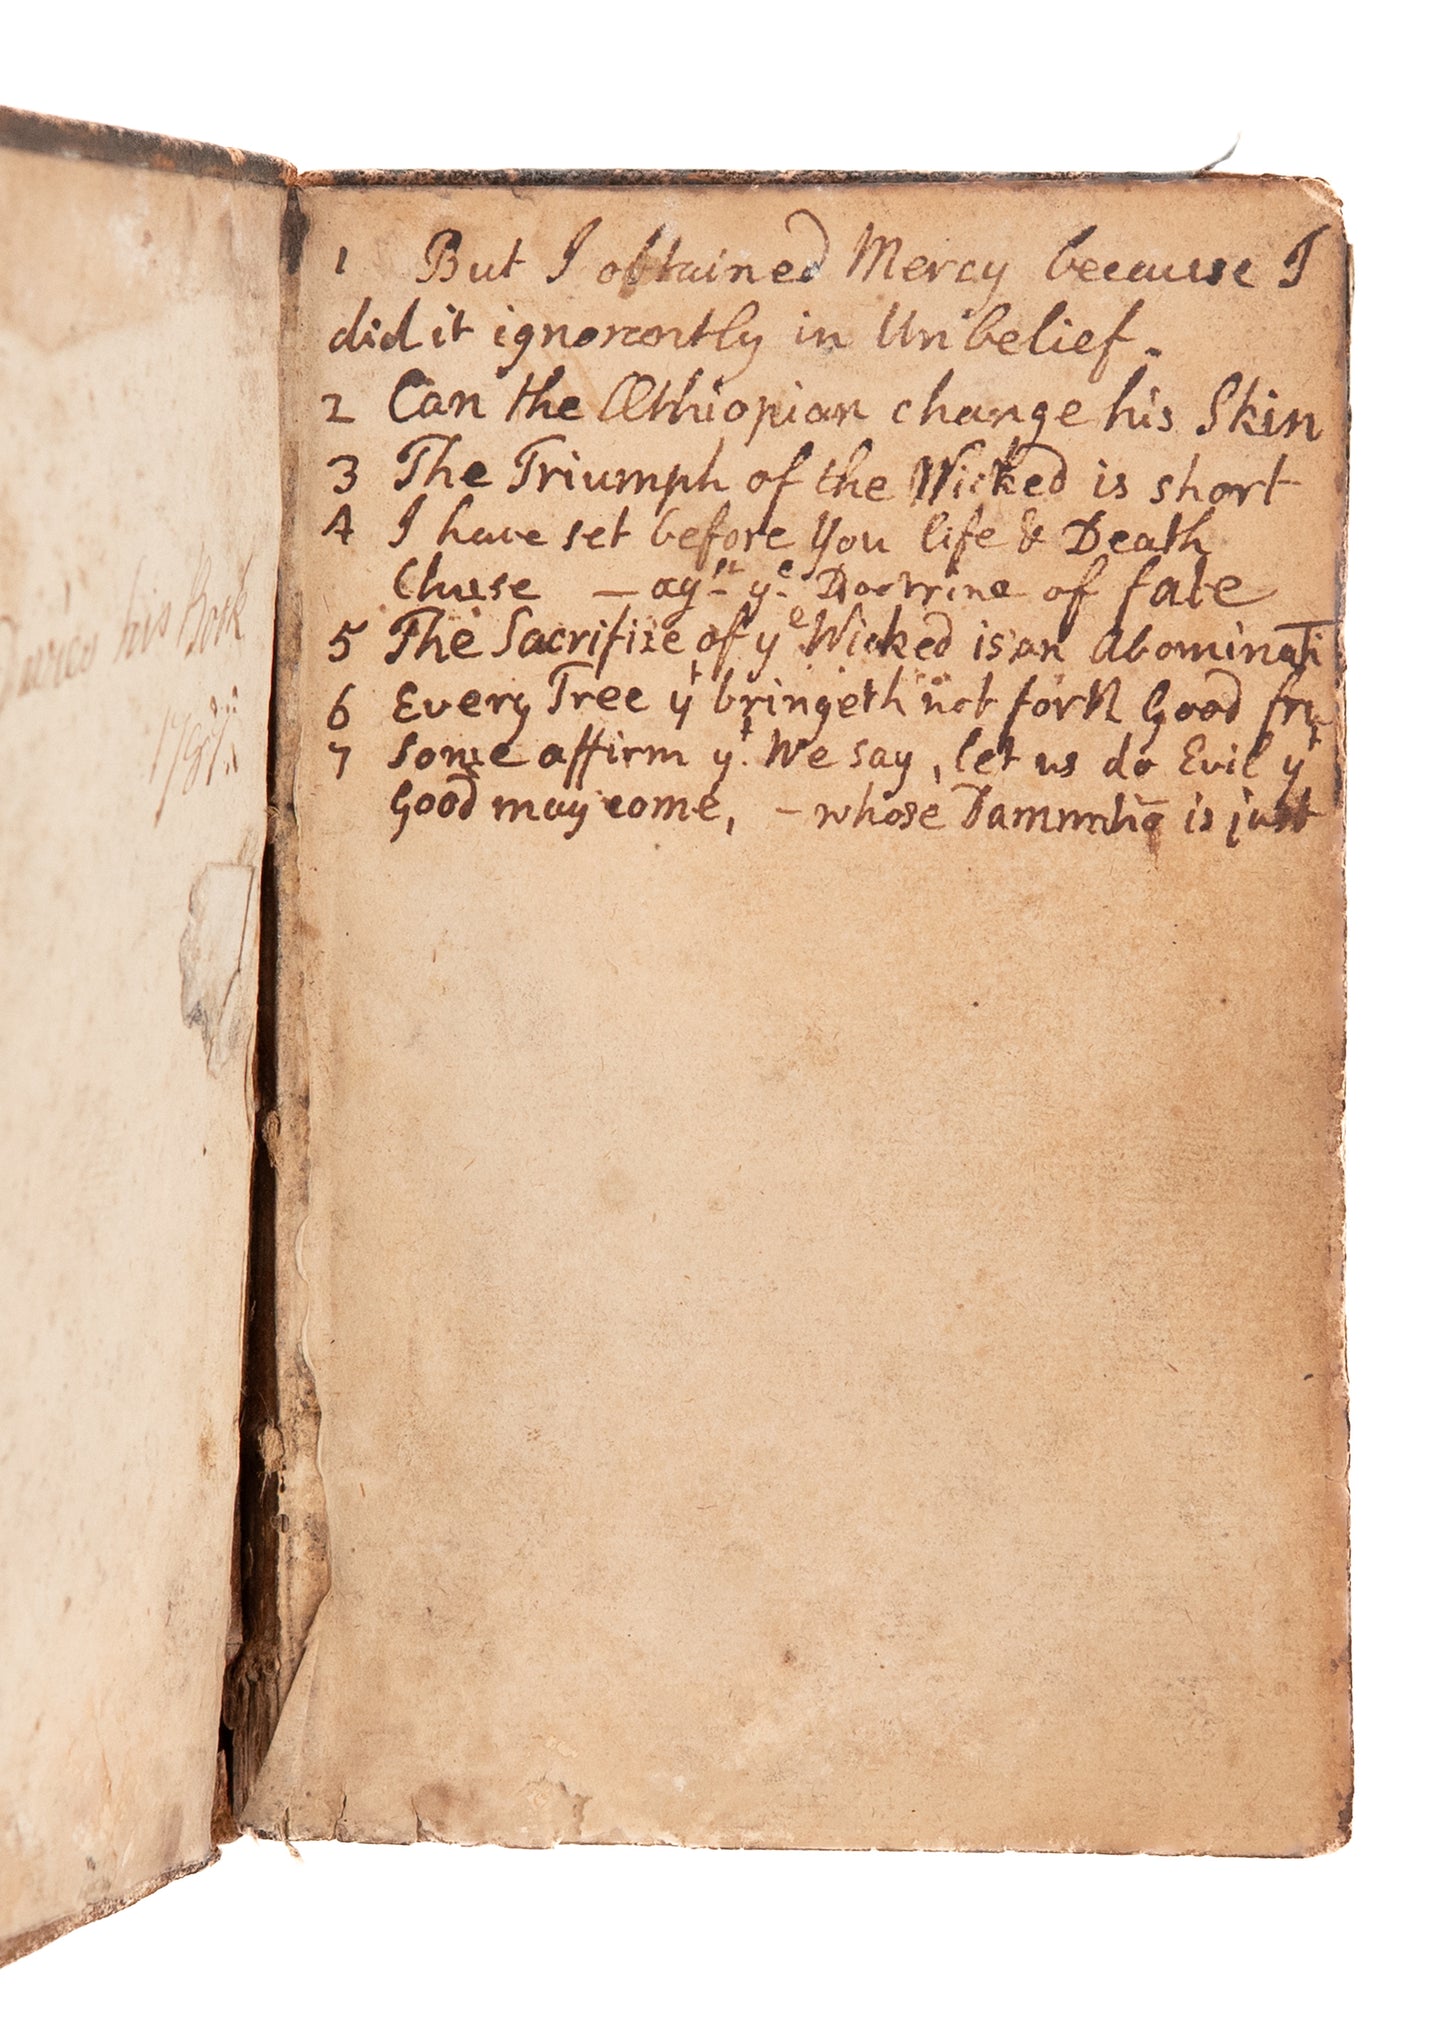 his Book
1787
1 But I obtained Mercy because I
did it ignorantly in Unbelief.
2 Can the Æthiopian change his Skin
3 The Triumph of the Wicked is short
4 I have set before You life & Death
Chuse — agst ye Doctrine of fate
5 The Sacrifize of ye Wicked is an Abominati
6 Every Tree yt bringeth not forth Good fru
7 Some affirm yt We say, let us do Evil yt
Good may come, – whose Damnatiō is just